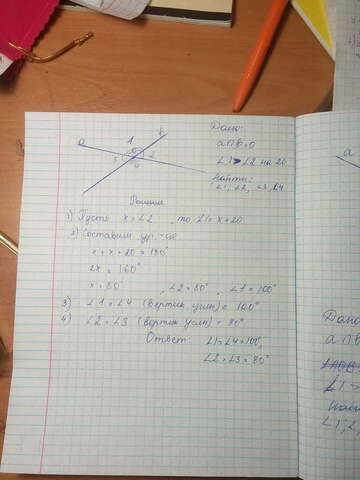 Дано:
a∩b=0
∠1>∠2 на 20
Найти:
∠1, ∠2, ∠3, ∠4
a
b
1
2
3
4
Решение
1) Пусть x=∠2, то ∠1=x+20
2) Составим ур.-ие
x+x+20=180°
2x=160°
x=80°, ∠2=80°, ∠1=100°
3) ∠1=∠4 (вертик углы)=100°
4) ∠2=∠3 (вертик углы)=80°
Ответ: ∠1=∠4=100°,
∠2=∠3=80°
Дано
a∩b
∠1>
∠1,∠2